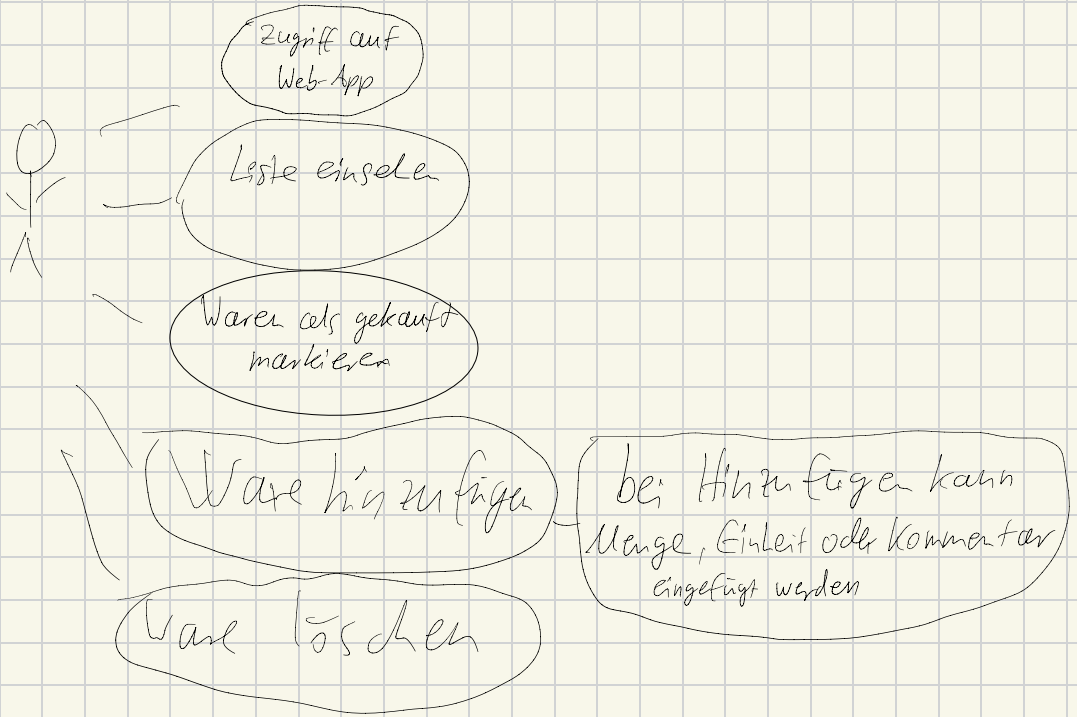 Zugriff auf
Web-App
Liste einsehen
Waren als gekauft
markieren
Ware hinzufügen
bei Hinzufügen kann
Menge, Einheit oder Kommentar
eingefügt werden
Ware löschen